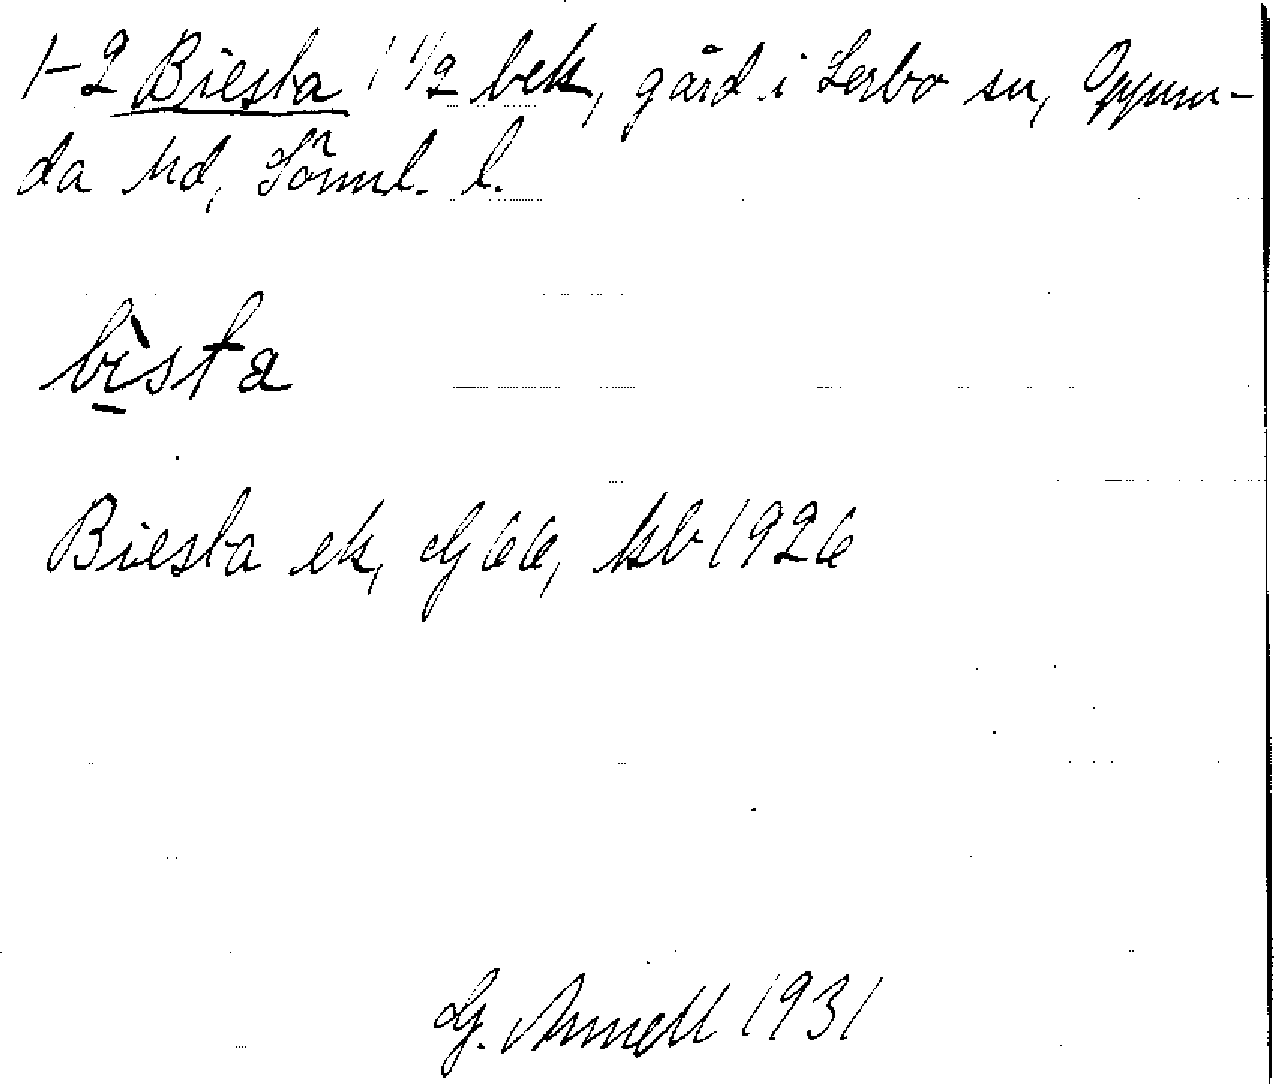 1-2 Biesta 1 1/2 bek, gård i Lerbo sn, Oppun-
da hd, Sörml. l.
bìsta
Biesta ek, Gg 66, ksb 1926
G. Arnell 1931